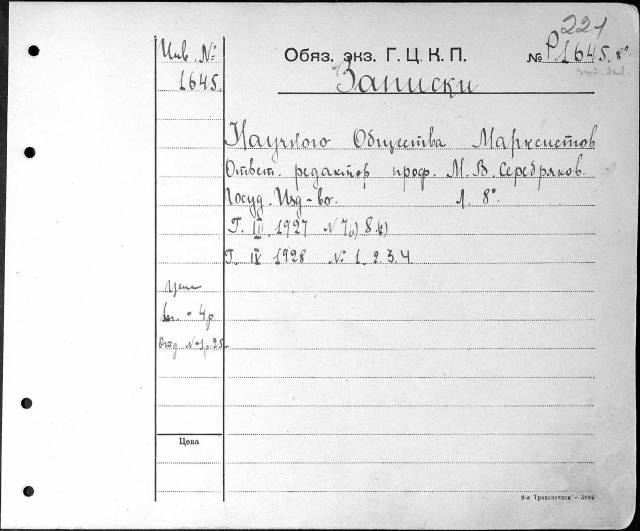 221
Инв. №
1645.
Обяз. экз. Г. Ц. К. П.
№ Р1645. 8°
Записки
Научного Общества Марксистов
Ответ. редактор проф. М. В. Серебряков.
Госуд. Изд-во. Л. 8°.
Г. III. 1927 № 7(6) 8
Г. IV 1928 № 1. 2. 3. 4.
Цена
4р
№ 1р. 25
Цена
8-я Транспечать — 3864